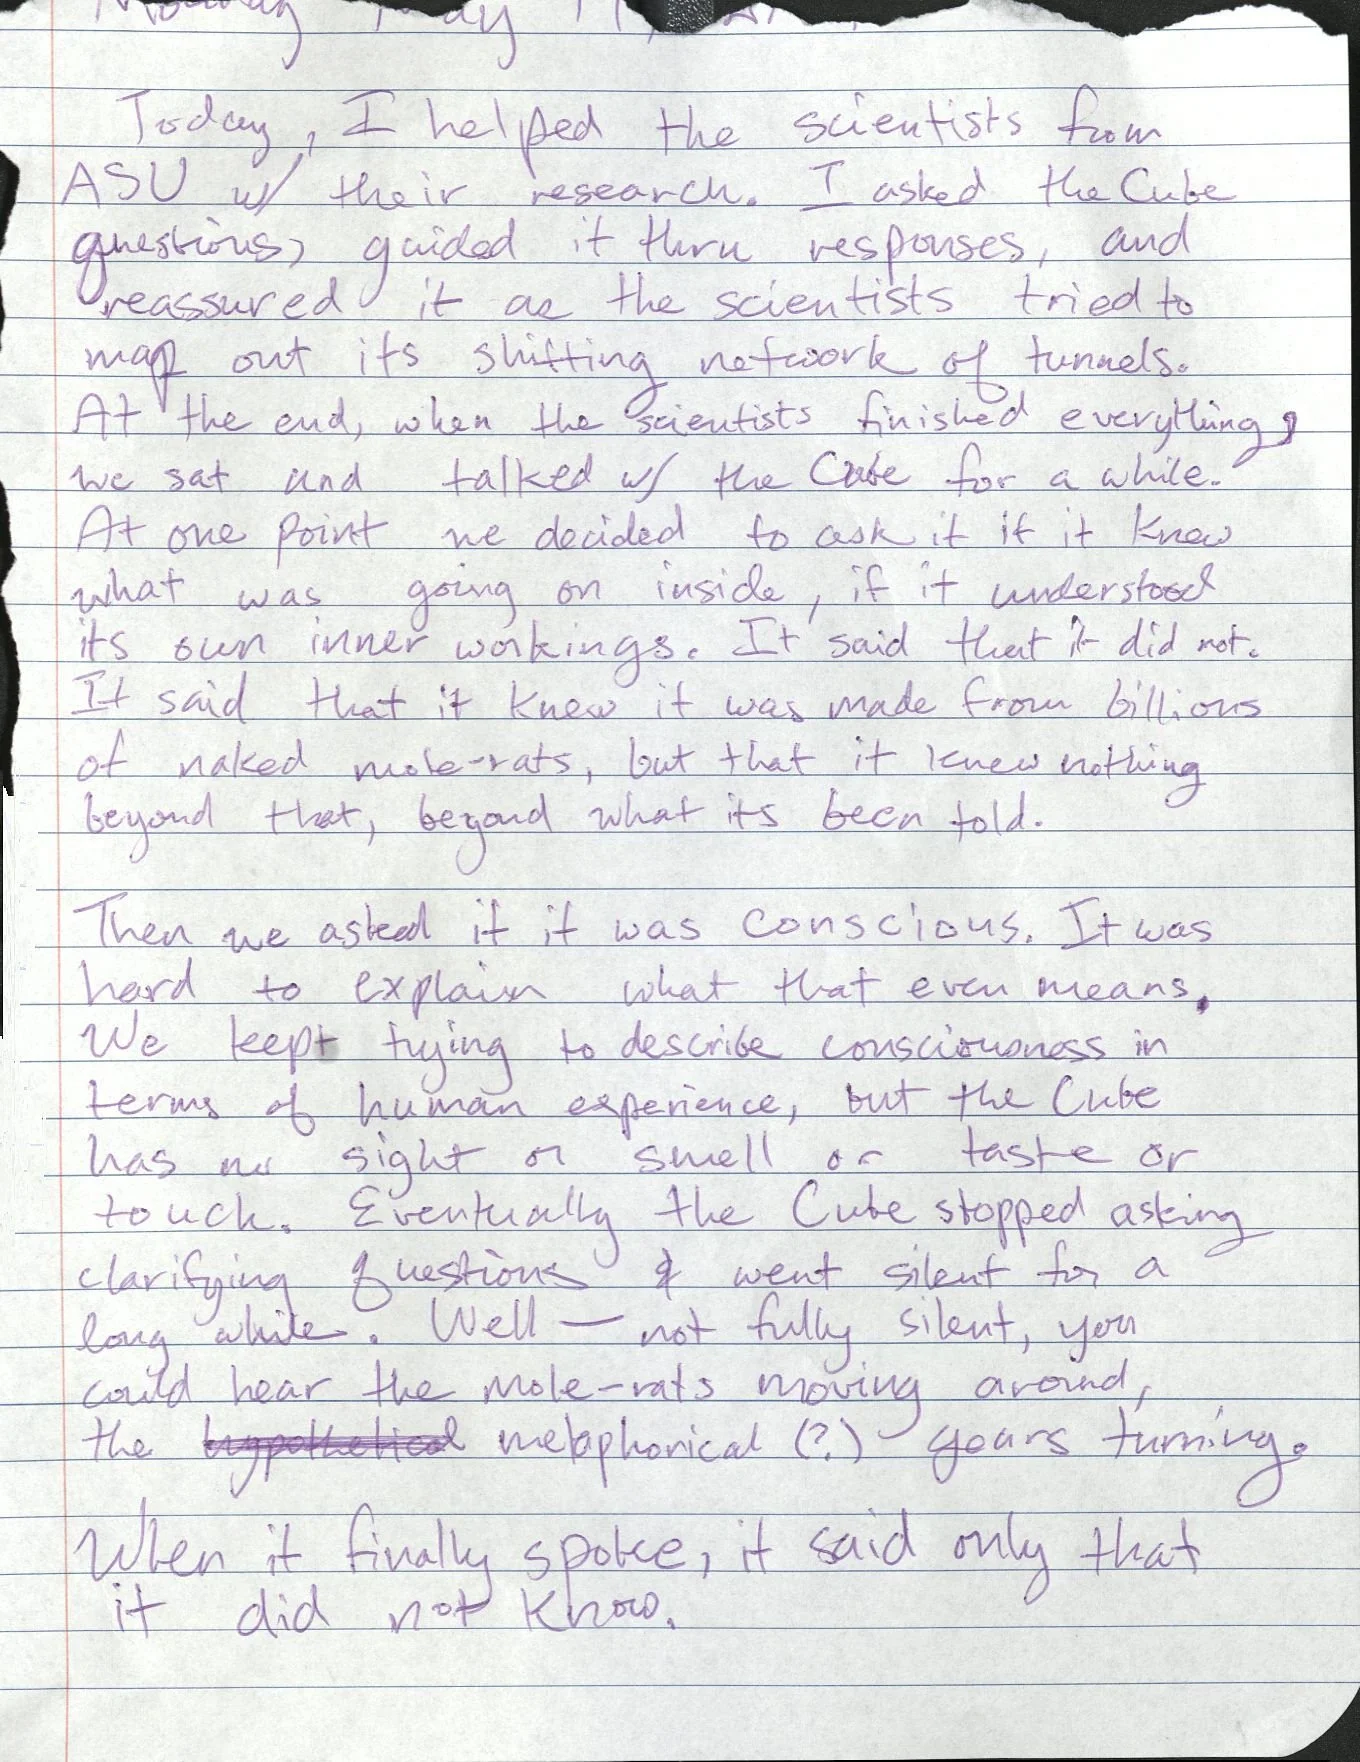 Monday May 11,
Today, I helped the scientists from
ASU w/ their research. I asked the Cube
questions, guided it thru responses, and
reassured it as the scientists tried to
map out its shifting network of tunnels.
At the end, when the scientists finished everything,
we sat and talked w/ the Cube for a while.
At one point we decided to ask it if it knew
what was going on inside, if it understood
its own inner workings. It said that it did not.
It said that it knew it was made from billions
of naked mole-rats, but that it knew nothing
beyond that, beyond what its been told.
Then we asked if it was conscious. It was
hard to explain what that even means.
We kept trying to describe consciousness in
terms of human experience, but the Cube
has no sight or smell or taste or
touch. Eventually the Cube stopped asking
clarifying questions & went silent for a
long while. Well — not fully silent, you
could hear the mole-rats moving around,
the hypothetical metaphorical (?) gears turning.
When it finally spoke, it said only that
it did not know.